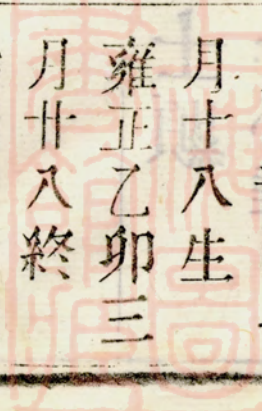 月十八生
雍正乙卯三
月廿八終